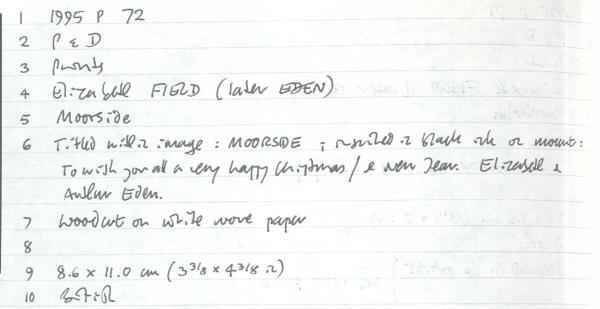 1 1995 P 72
2 P & D
3 Prints
4 Elizabeth FIELD (later EDEN)
5 Moorside
6 Titled within image : MOORSIDE ; inscribed in black ink on mount :
To wish you all a very happy Christmas / & New Year. Elizabeth &
Arthur Eden.
7 Woodcut on white wove paper
8
9 8.6 x 11.0 cm (3 3/8 x 4 3/8 in)
10